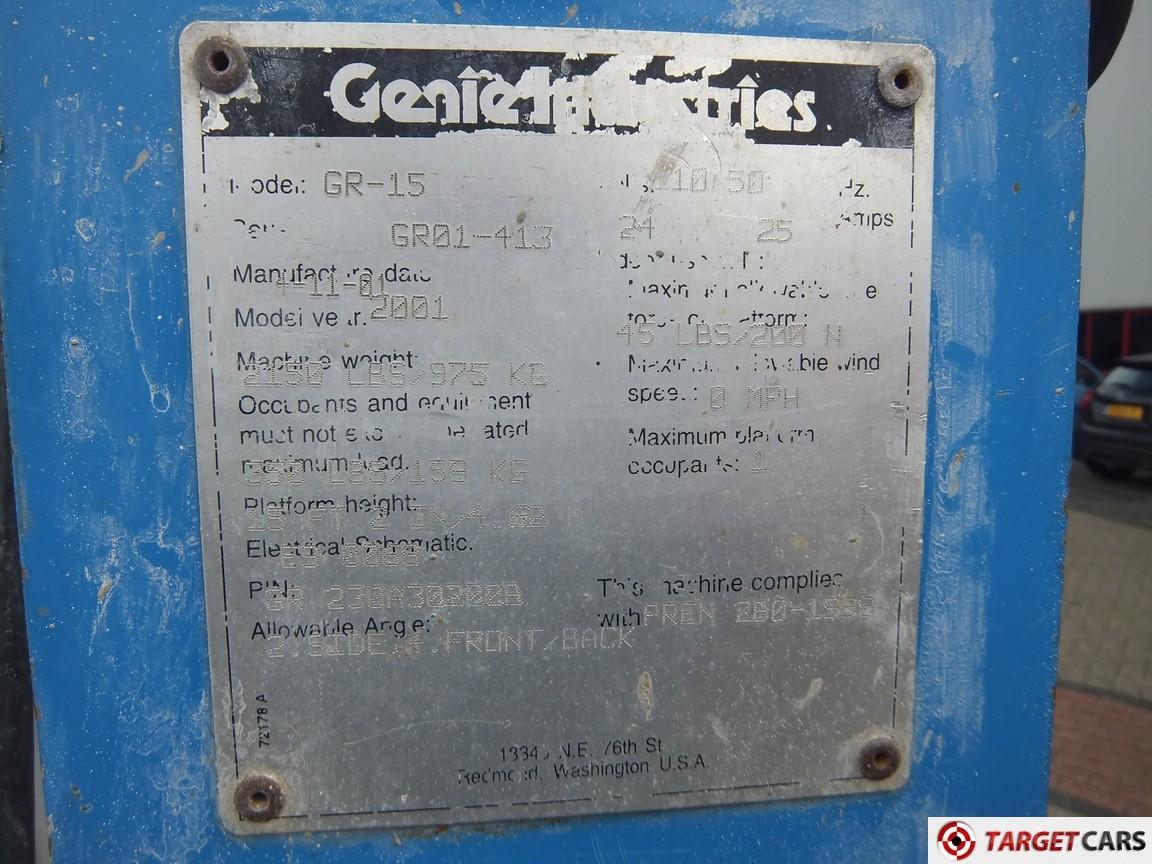 Genie Industries
Model: GR-15
GR01-413
Manufacture date
4-11-01
Model year: 2001
Machine weight:
2150 LBS/975 KG
Occupants and equipment
must not rated
maximum load.
350 LBS/159 KG
Platform height:
15 FT 2 IN/4.62 M
Electrical Schematic.
PIN:
GR 230A30200B
Allowable Angle:
FRONT/BACK
72178 A
50 Hz.
24 25 Amps
Maximum allowable
45 LBS/200 N
Maximum allowable wind
speed: 0 MPH
Maximum platform
occupants: 1
This machine complies
with PREN 280-
N.E. 76th St
Redmond, Washington U.S.A.
TARGET CARS